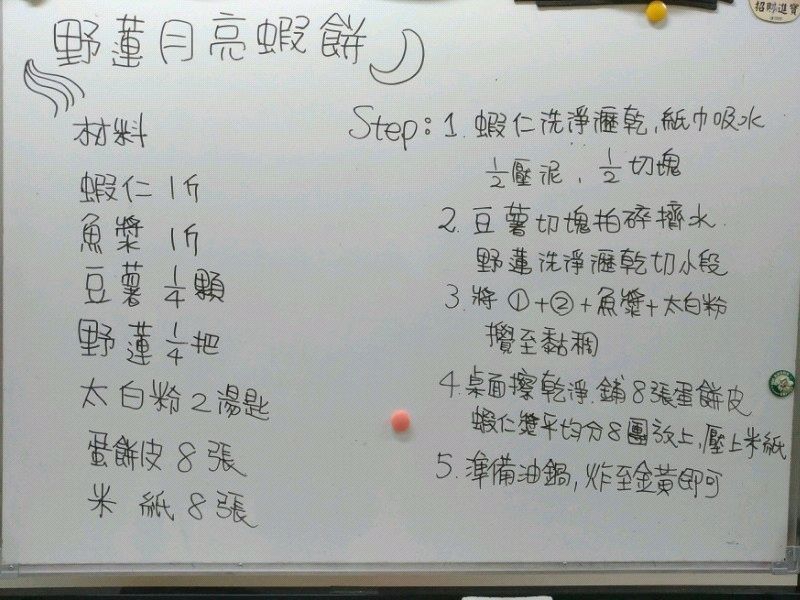 招財進寶
野蓮月亮蝦餅
材料
蝦仁 1斤
魚漿 1斤
豆薯 1/4 顆
野蓮 1/4 把
太白粉 2 湯匙
蛋餅皮 8 張
米 紙 8 張
Step: 1. 蝦仁洗淨瀝乾,紙巾吸水
1/2 壓泥、1/2 切塊
2. 豆薯切塊拍碎擠水
野蓮洗淨瀝乾切小段
3. 將 ①+②+魚漿+太白粉
攪至黏稠
4. 桌面擦乾淨.鋪8張蛋餅皮
蝦仁漿平均分8團放上,壓上米紙
5. 準備油鍋,炸至金黃即可